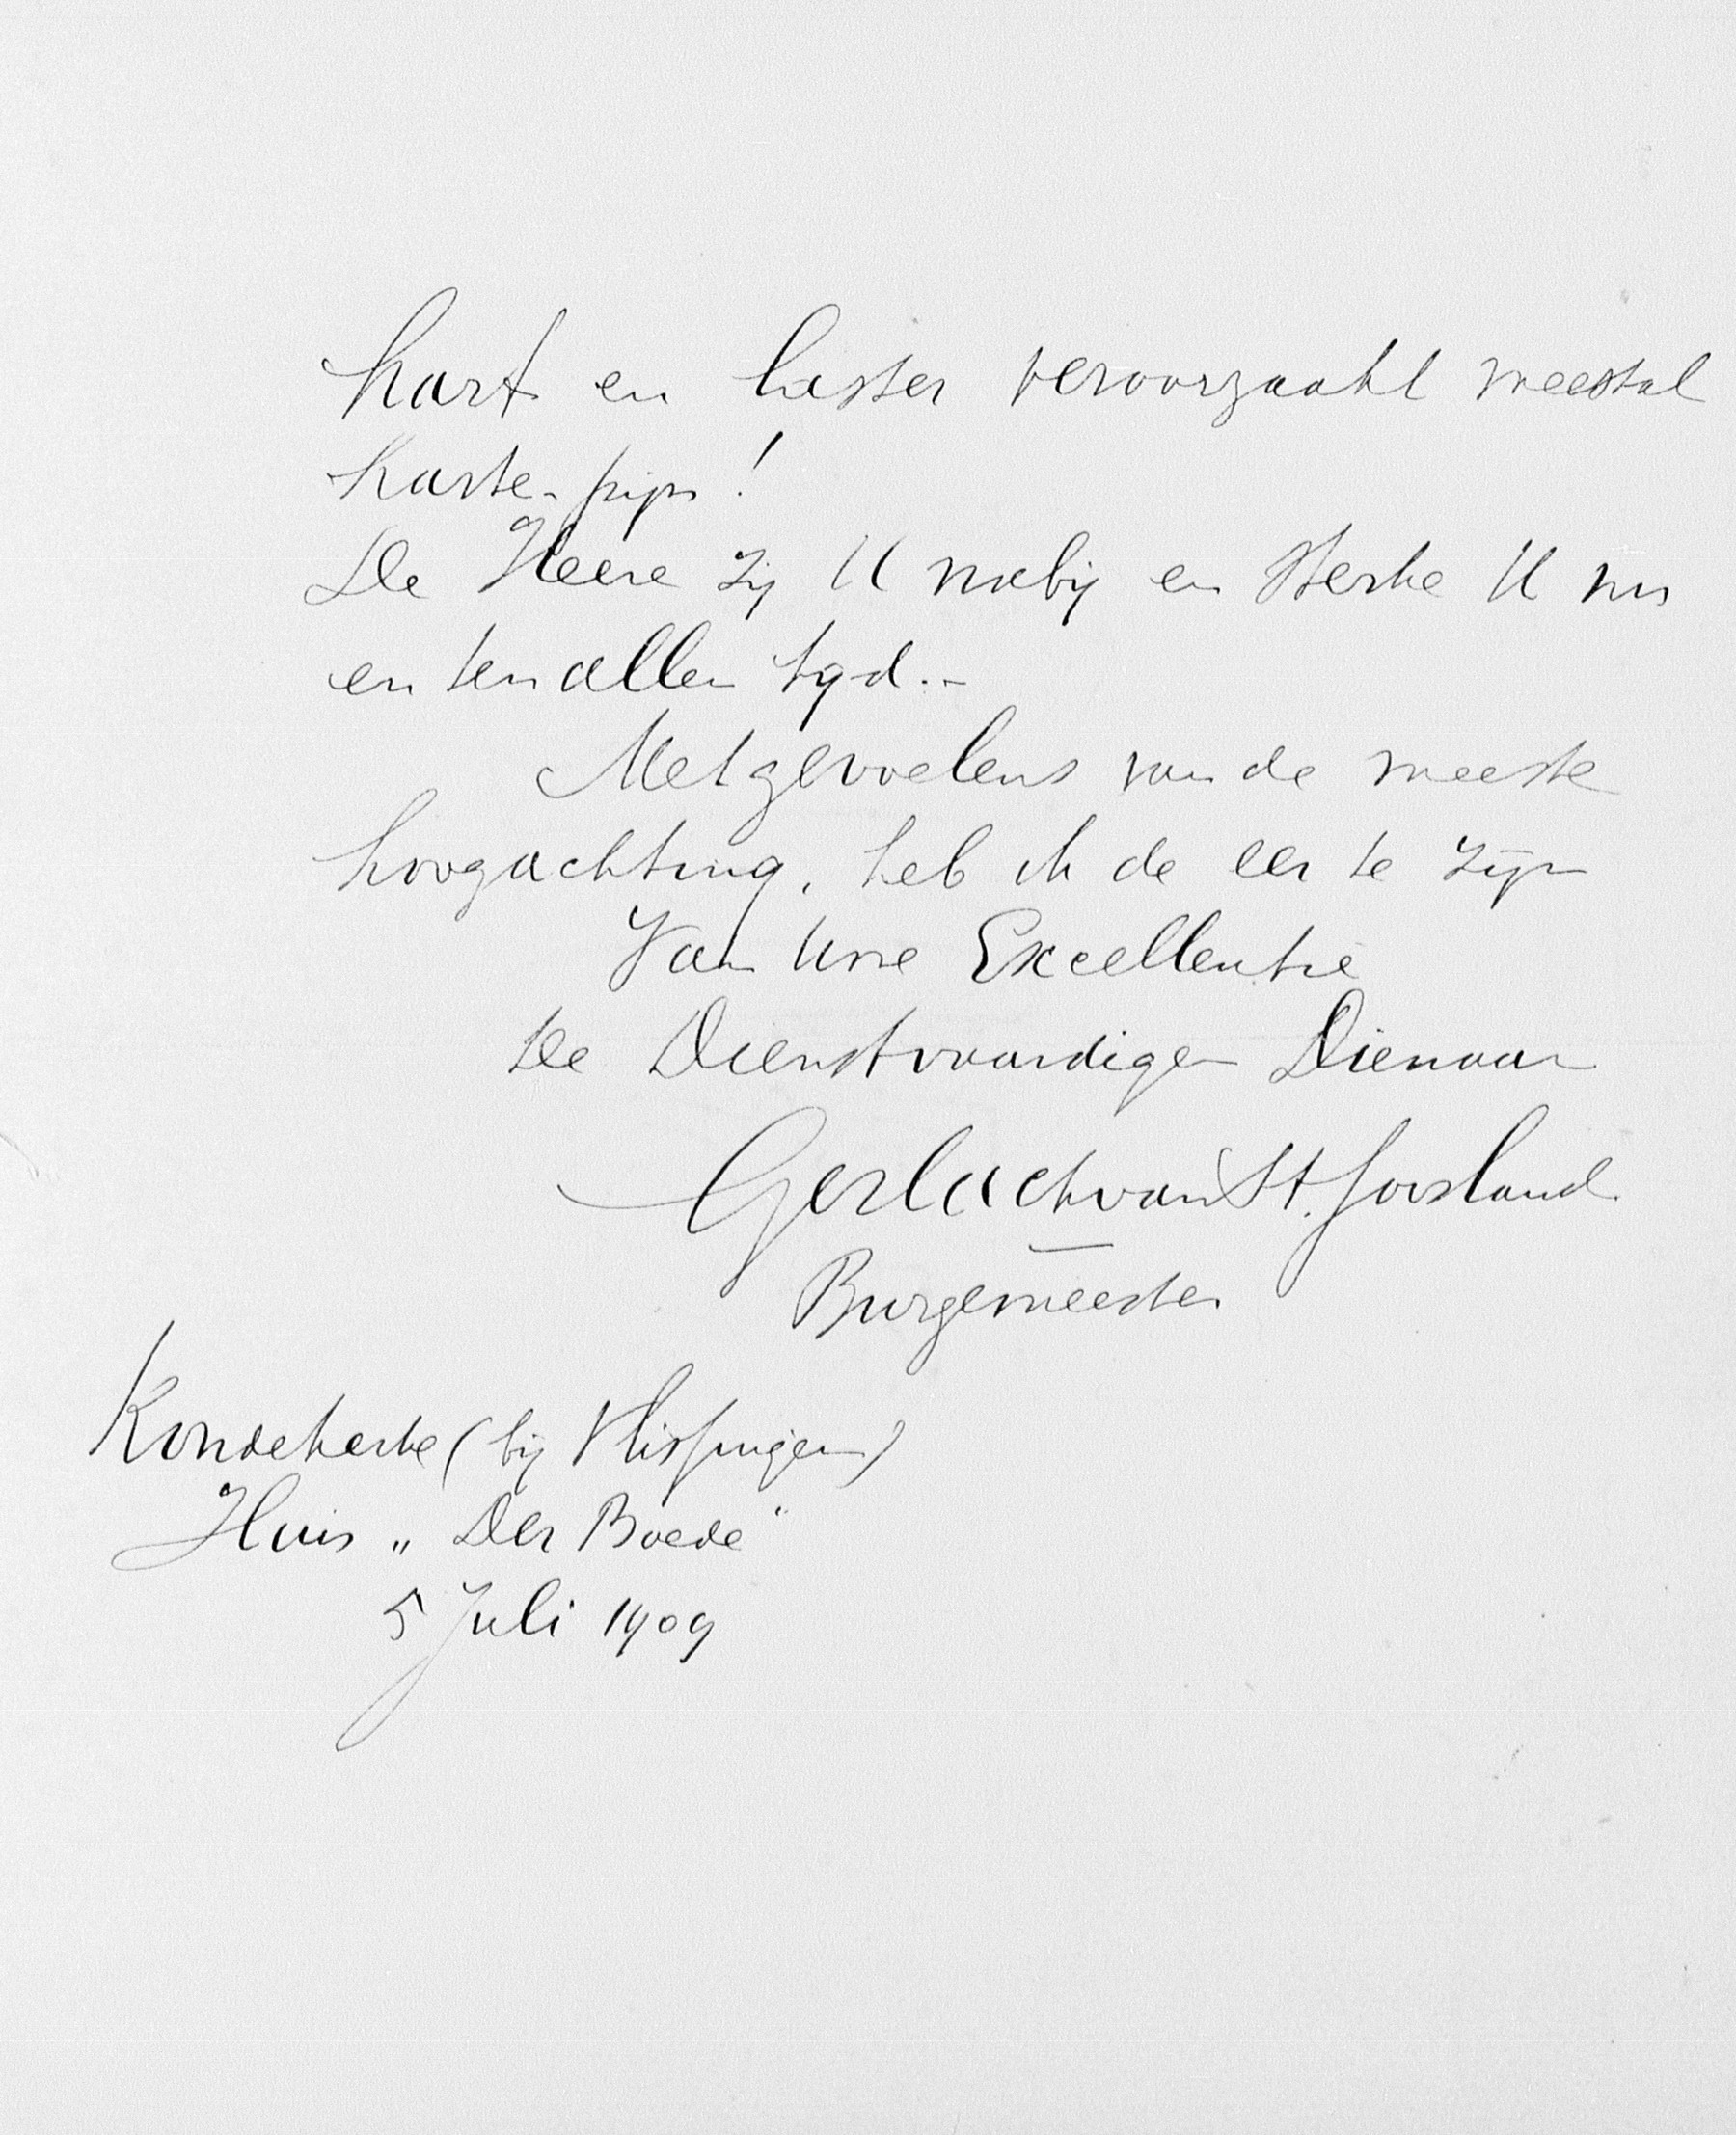 hart en laster veroorzaakt meestal
harte-pijn!
De Heere zij U nabij en sterke U nu
en ten allen tyd.-
Met gevoelens van de meeste
hoogachting, heb ik de eer te zijn
Van Uwe Excellentie
De Dienstvaardigen Dienaar
Gerlach van St. Joosland
Burgemeester
Koudekerke (bij Vlissingen)
Huis „Der Boede"
5 Juli 1909